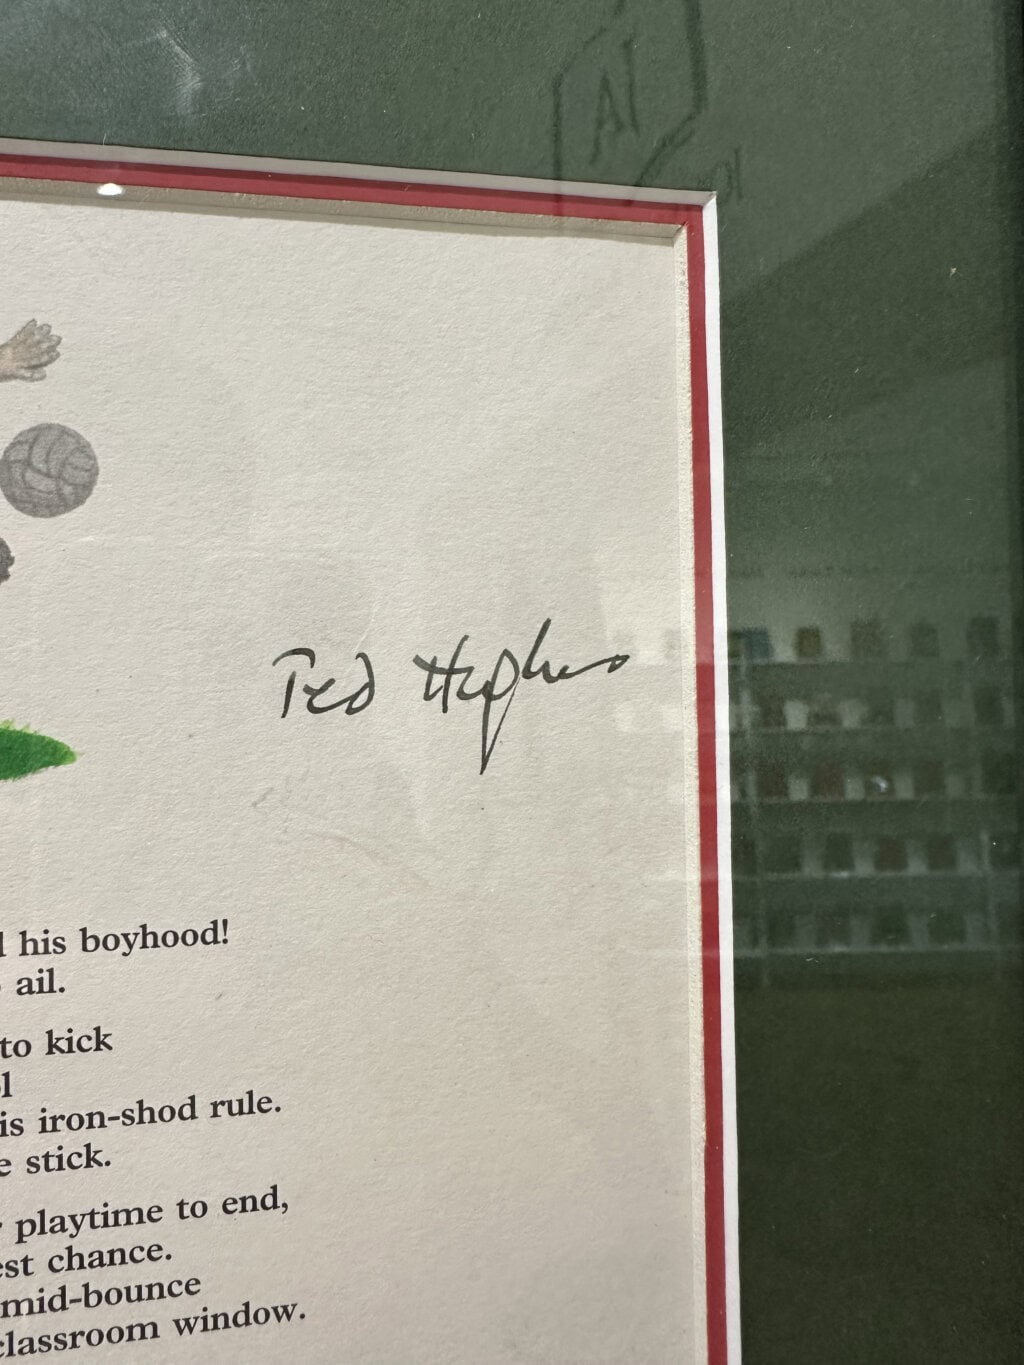 AI
Ted Hughes
his boyhood!
ail.
to kick
iron-shod rule.
stick.
playtime to end,
chance.
mid-bounce
classroom window.